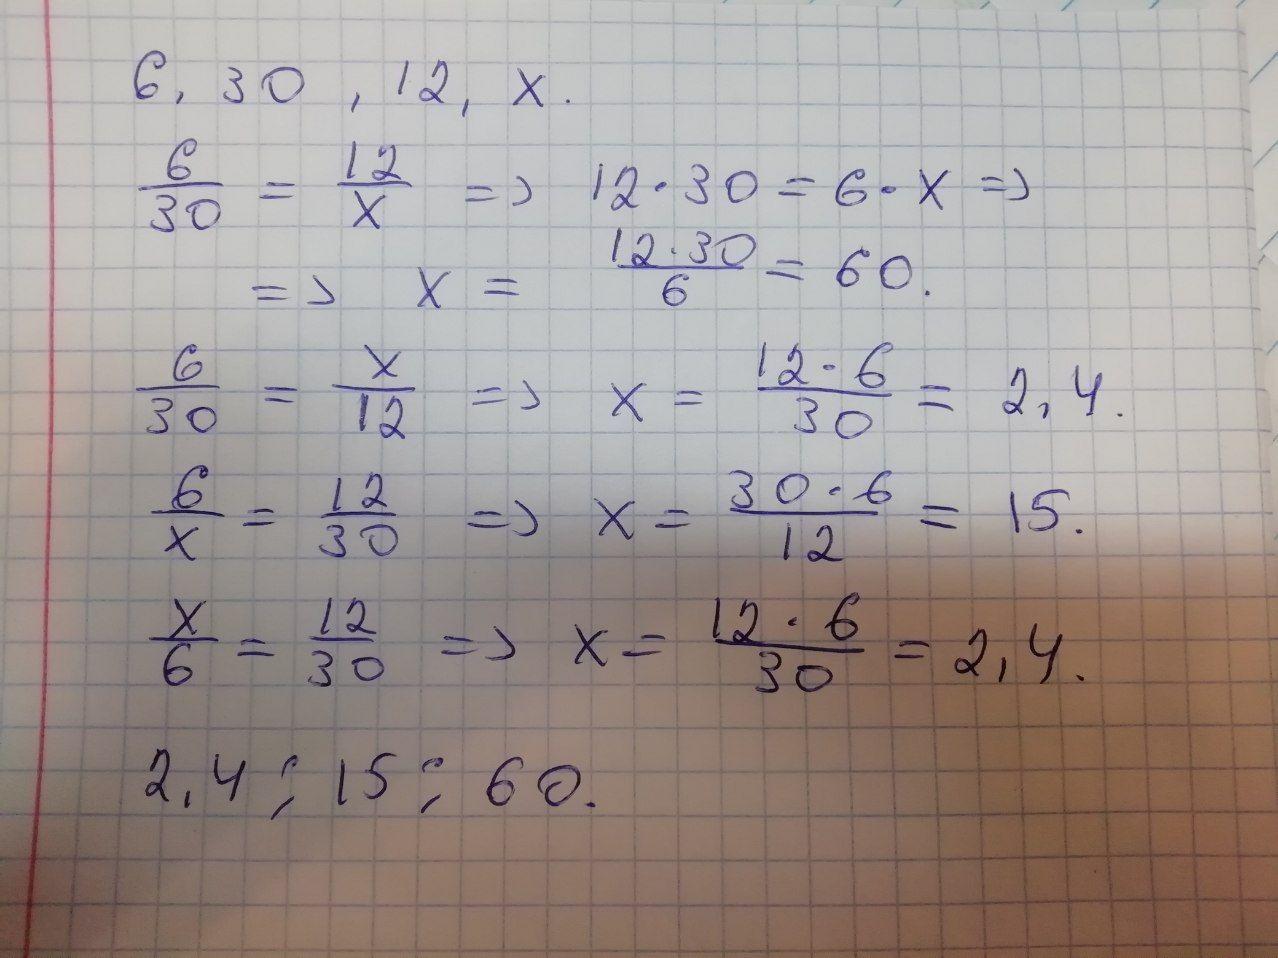 6, 30, 12, x.
6/30 = 12/x => 12·30 = 6·x =>
=> x = 12·30/6 = 60.
6/30 = x/12 => x = 12·6/30 = 2,4.
6/x = 12/30 => x = 30·6/12 = 15.
x/6 = 12/30 => x = 12·6/30 = 2,4.
2,4; 15; 60.